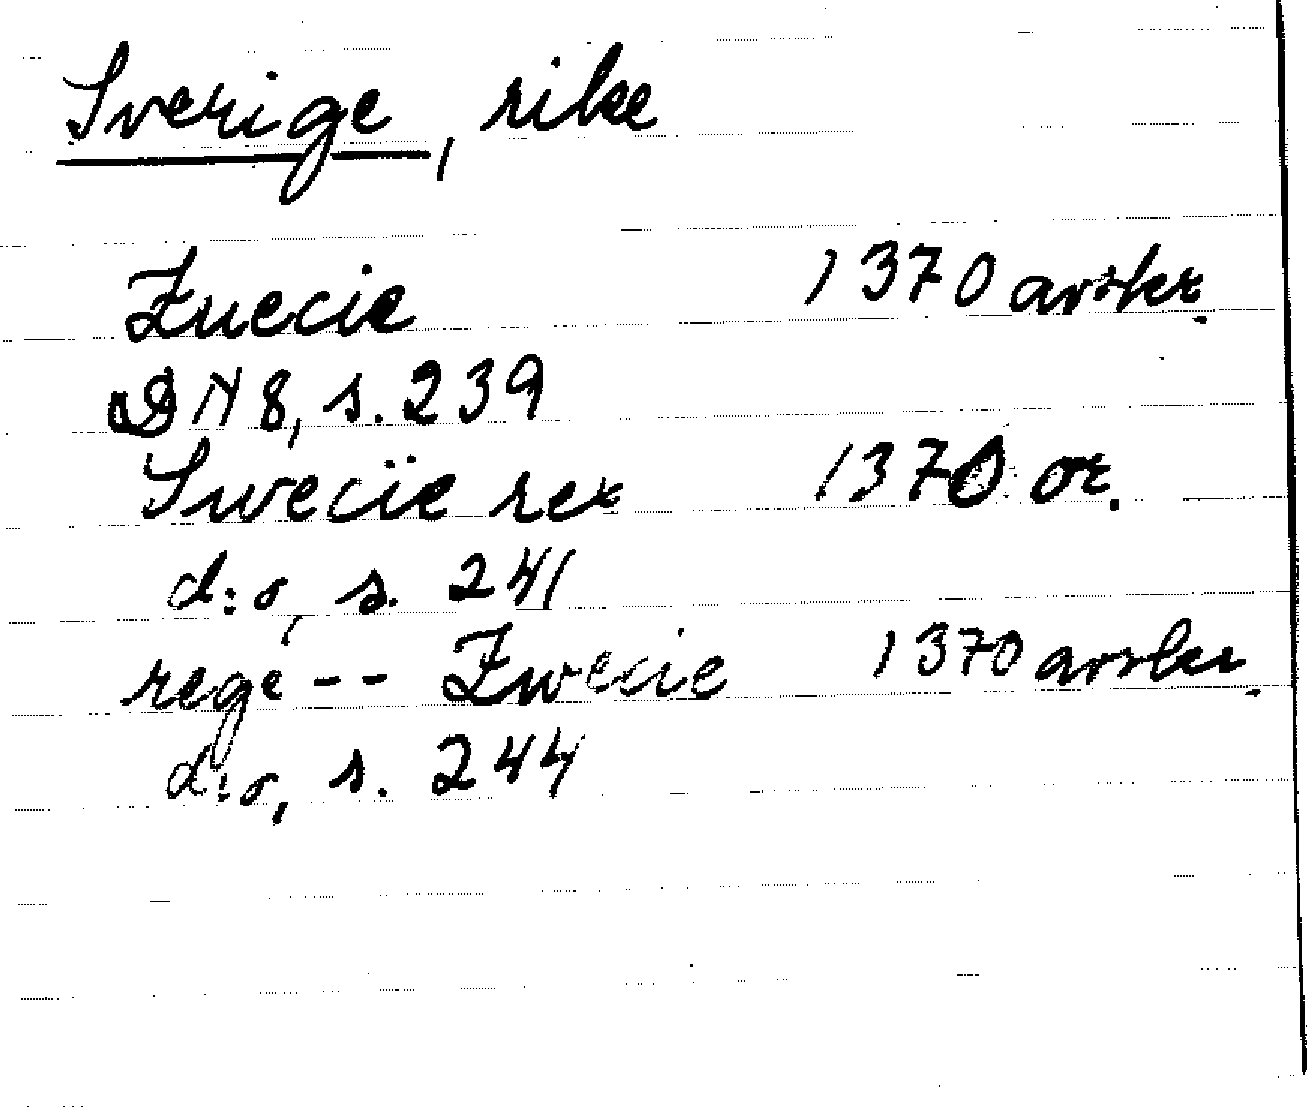 Sverige, rike
Zuecie 1370 avskr.
DN 8, s. 239
Swecie rex 1370 or.
d:o, s. 241
rege -- Zwecie 1370 avskr.
d:o, s. 244